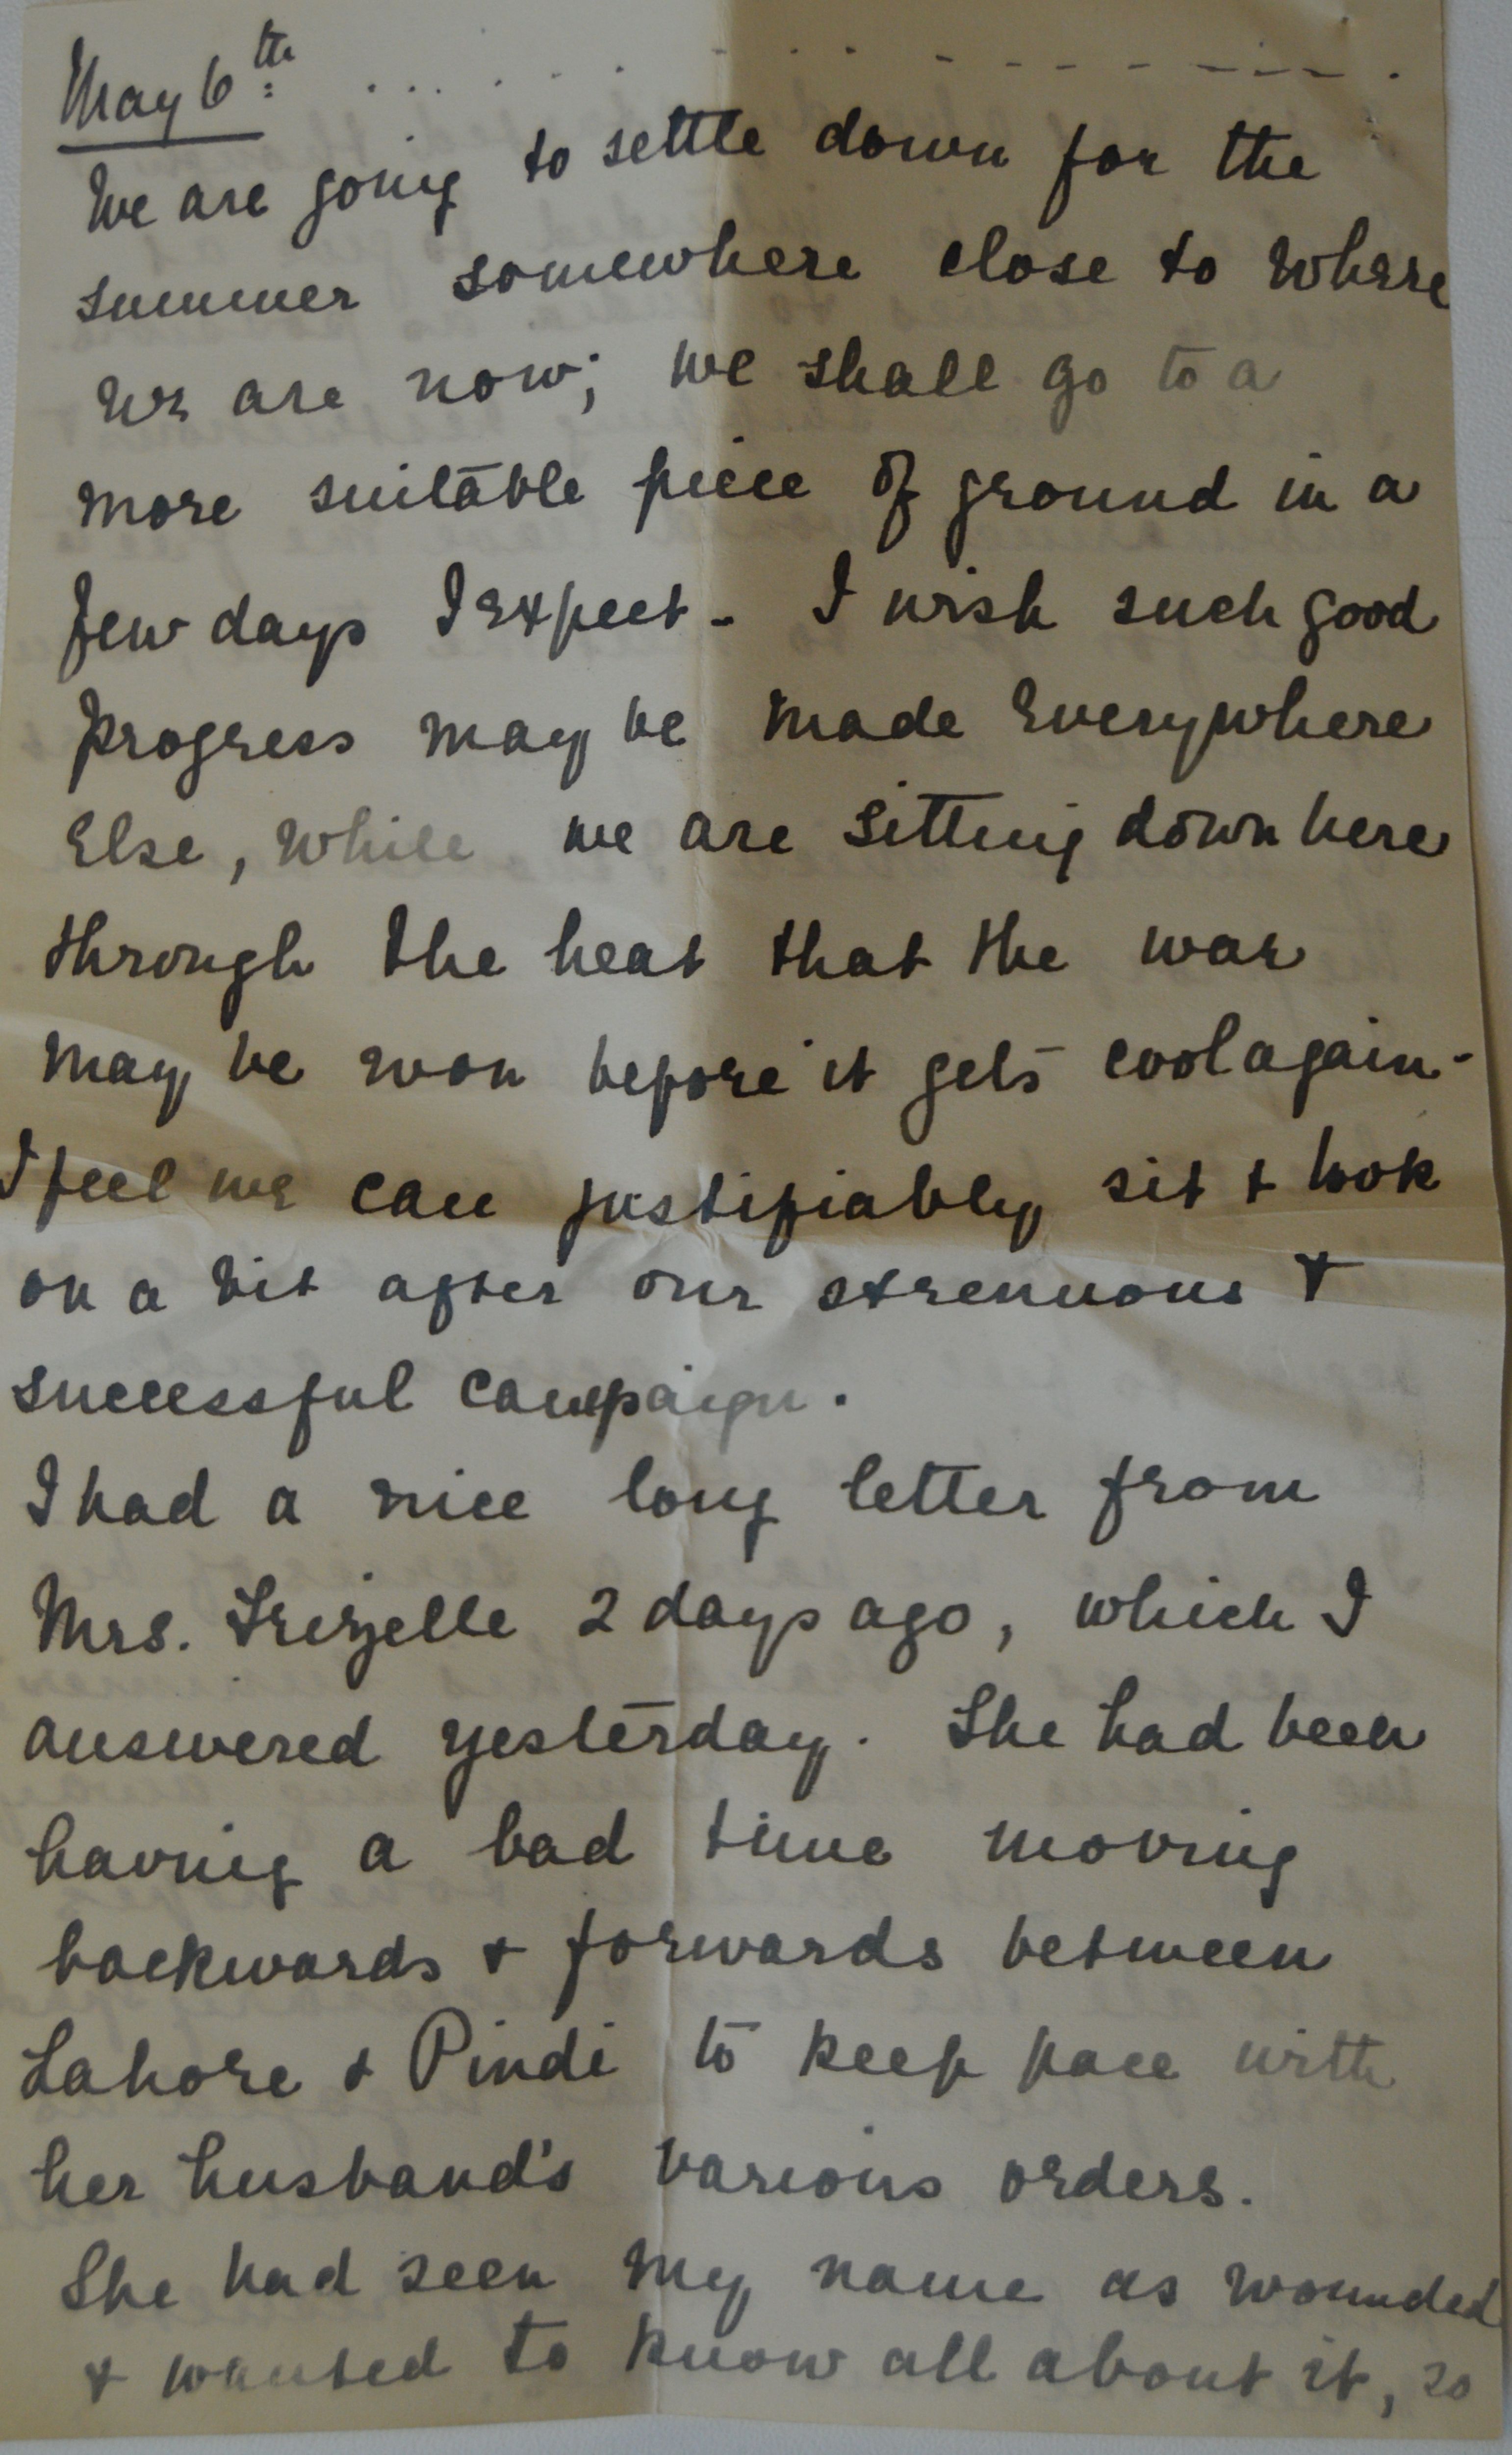 May 6th: . . . . . . - . . - - - - - - - - .
We are going to settle down for the
summer somewhere close to where
we are now; we shall go to a
more suitable piece of ground in a
few days I expect - I wish such good
progress may be made everywhere
else, while we are sitting down here
through the heat that the war
may be won before it gets cool again -
I feel we can justifiably sit & look
on a bit after our strenuous &
successful campaign.
I had a nice long letter from
Mrs. Frizelle 2 days ago, which I
answered yesterday. She had been
having a bad time moving
backwards & forwards between
Lahore & Pindi to keep pace with
her husband's various orders.
She had seen my name as wounded
& wanted to know all about it, so